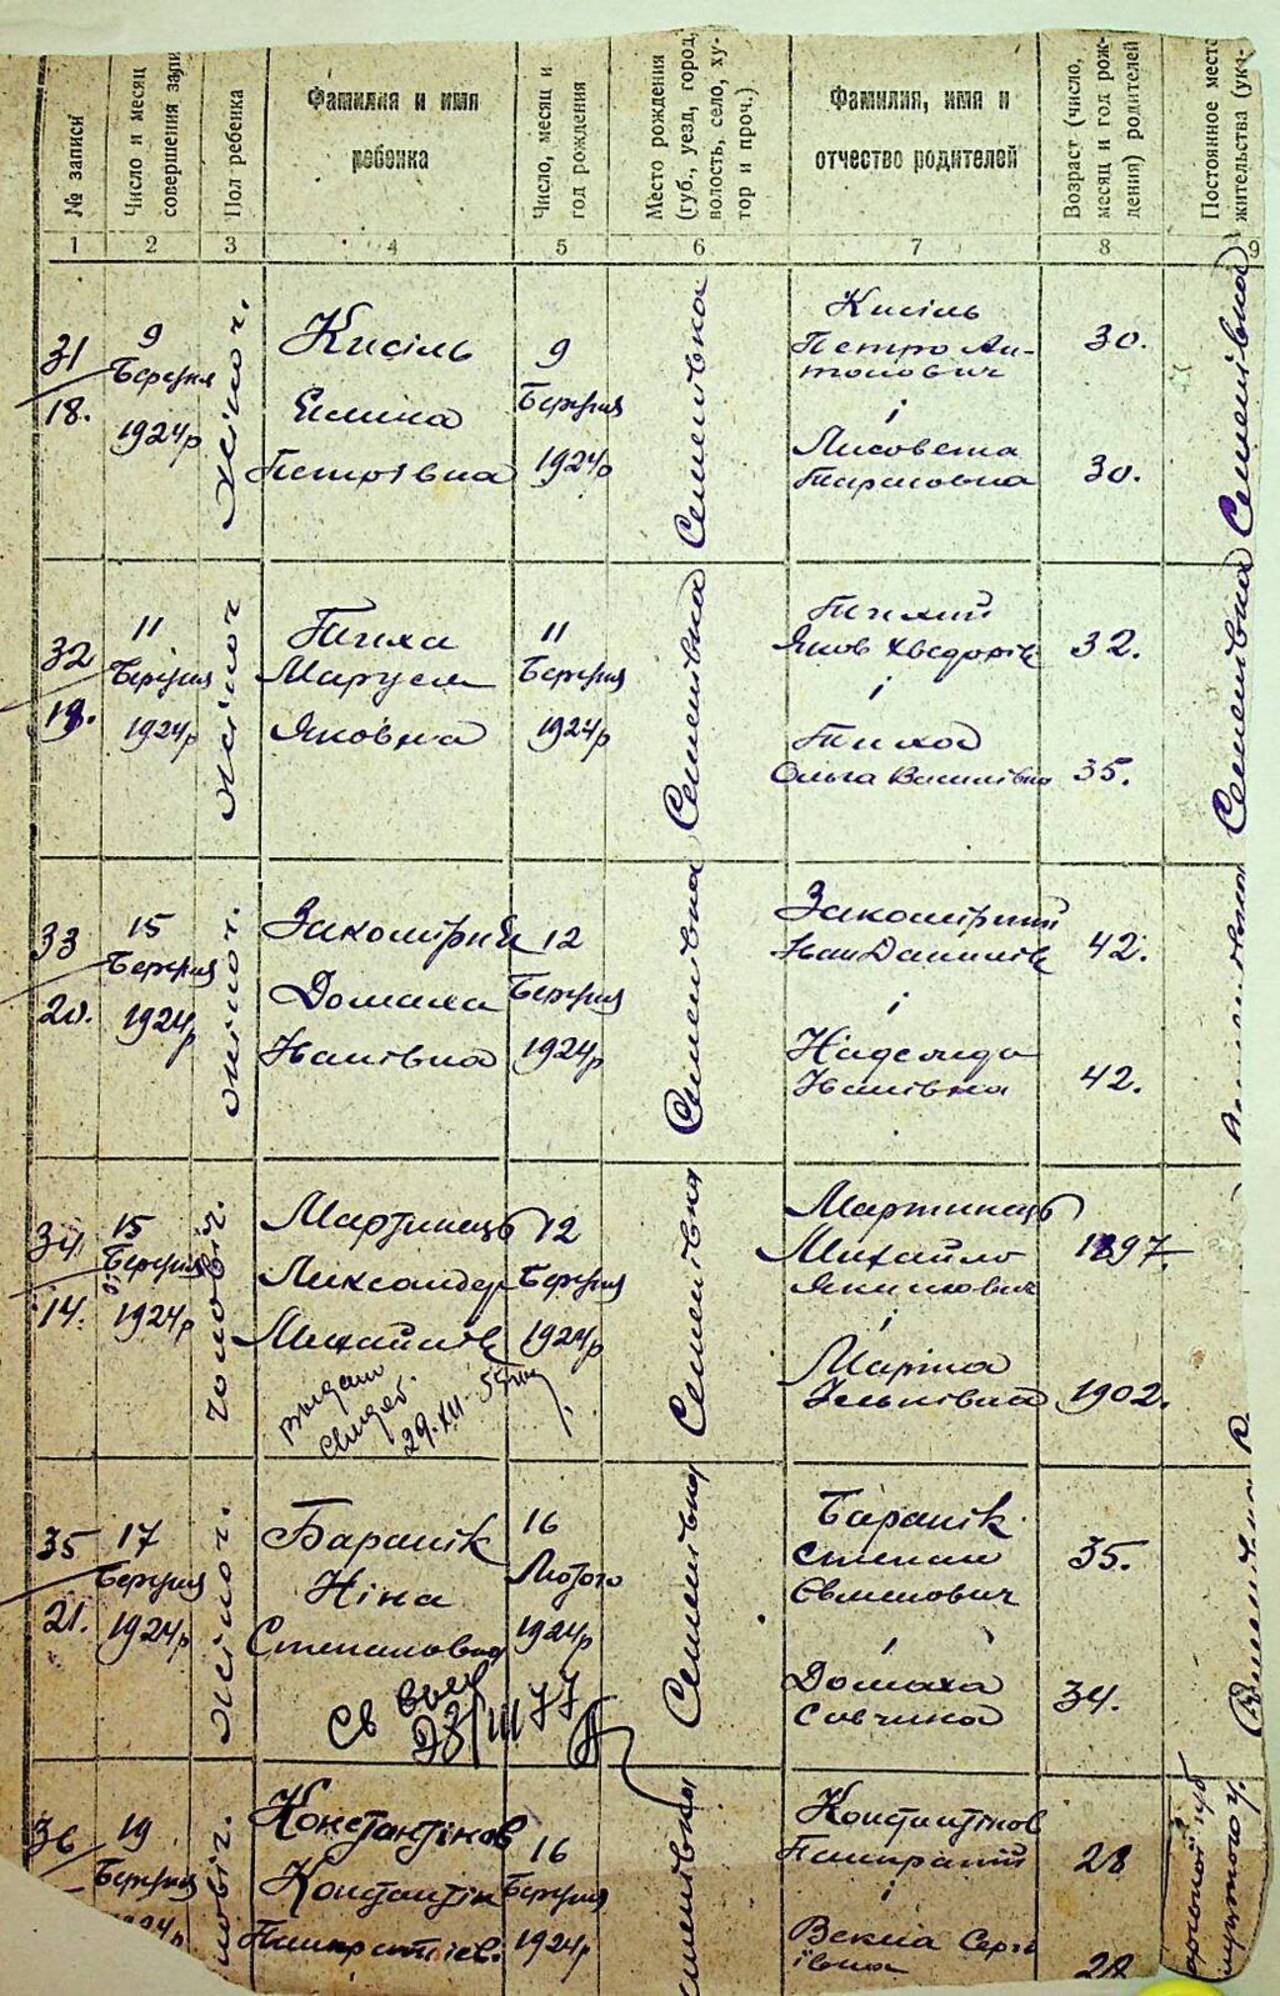 № записи
Число и месяц
совершения запи
Пол ребенка
Фамилия и имя
ребенка
Число, месяц и
год рождения
Место рождения
(губ., уезд, город,
волость, село, ху-
тор и проч.)
Фамилия, имя и
отчество родителей
Возраст (число,
месяц и год рож-
дения) родителей
Постоянное место
жительства (ука-
1 2 3 4 5 6 7 8 9
31
18.
9
Березня
1924р
жіноч.
Кисіль
Петровна
9
Березня
1924р
Семенівка
Кисіль
Петро Ан-
тонович
і
Лисовета
Тарасовна
30.
30.
Семенівка
32
19.
11
Березня
1924р
жіноч
Тиха
Маруся
Яковна
11
Березня
1924р
Семенівка
Тихий
Яков Хведорів
і
Тиха
Ольга Василівна
32.
35.
Семенівка
33
20.
15
Березня
1924р
жіноч.
Домаха
Іванівна
12
Березня
1924р
Семенівка
Закомірний
Іван Данилів
і
Надежда
Іванівна
42.
42.
34
14.
15
Березня
1924р
чоловіч.
Мартинець
Ликсандер
Михайлів
12
Березня
1924р
29.XII
Семенівка
Мартинець
Михайло
Якимович
і
Марта
1897.
1902.
35
21.
17
Березня
1924р
жіноч.
Бараník
Ніна
Степановна
16
Лютого
1924р
Св выд
23/III 77
Семенівка
Баранік
Степан
Домаха
Савчина
35.
34.
36
19
Березня
1924р
Константінов
Константін
16
Березня
1924р
Константінов
Панкратій
і
28
28